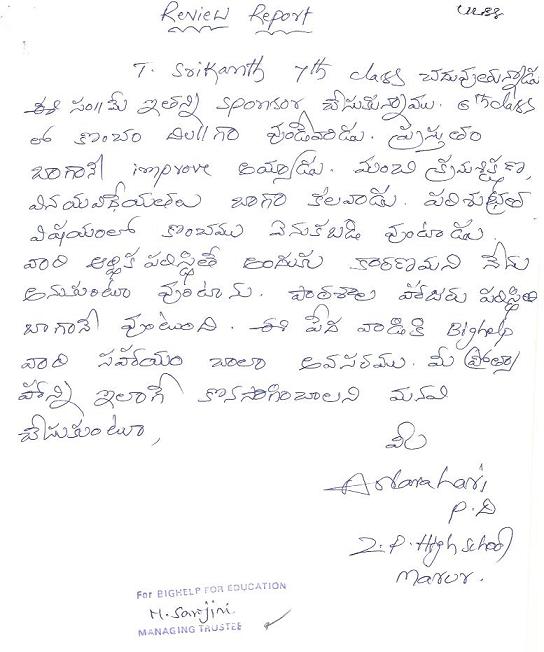 Review Report
T. Srikanth 7th class చదువుతున్నాడు
ఈ సం॥మే ఇతన్ని sponsor చేసుకున్నాము. 6th class
లో కొంచం డల్‌గా వుండేవాడు. ప్రస్తుతం
బాగానే improve అయ్యాడు. మంచి క్రమశిక్షణ,
వినయవిధేయతలు బాగా కలవాడు. పరిశుభ్రత
విషయంలో కొంచము వెనుకబడి వుంటాడు
వారి ఆర్థిక పరిస్థితే అందుకు కారణమని నేను
అనుకుంటూ వుంటాను. పాఠశాల హాజరు పరిస్థితి
బాగానే వుంటుంది. ఈ పేద వాడికి Bighelp
వారి సహాయం చాలా అవసరము. మీ ప్రోత్సా
హాన్ని ఇలాగే కొనసాగించాలని మనవి
చేసుకుంటూ,
మీ
Narahari
P.D
Z.P. High School
Marur.
For BIGHELP FOR EDUCATION
MANAGING TRUSTEE